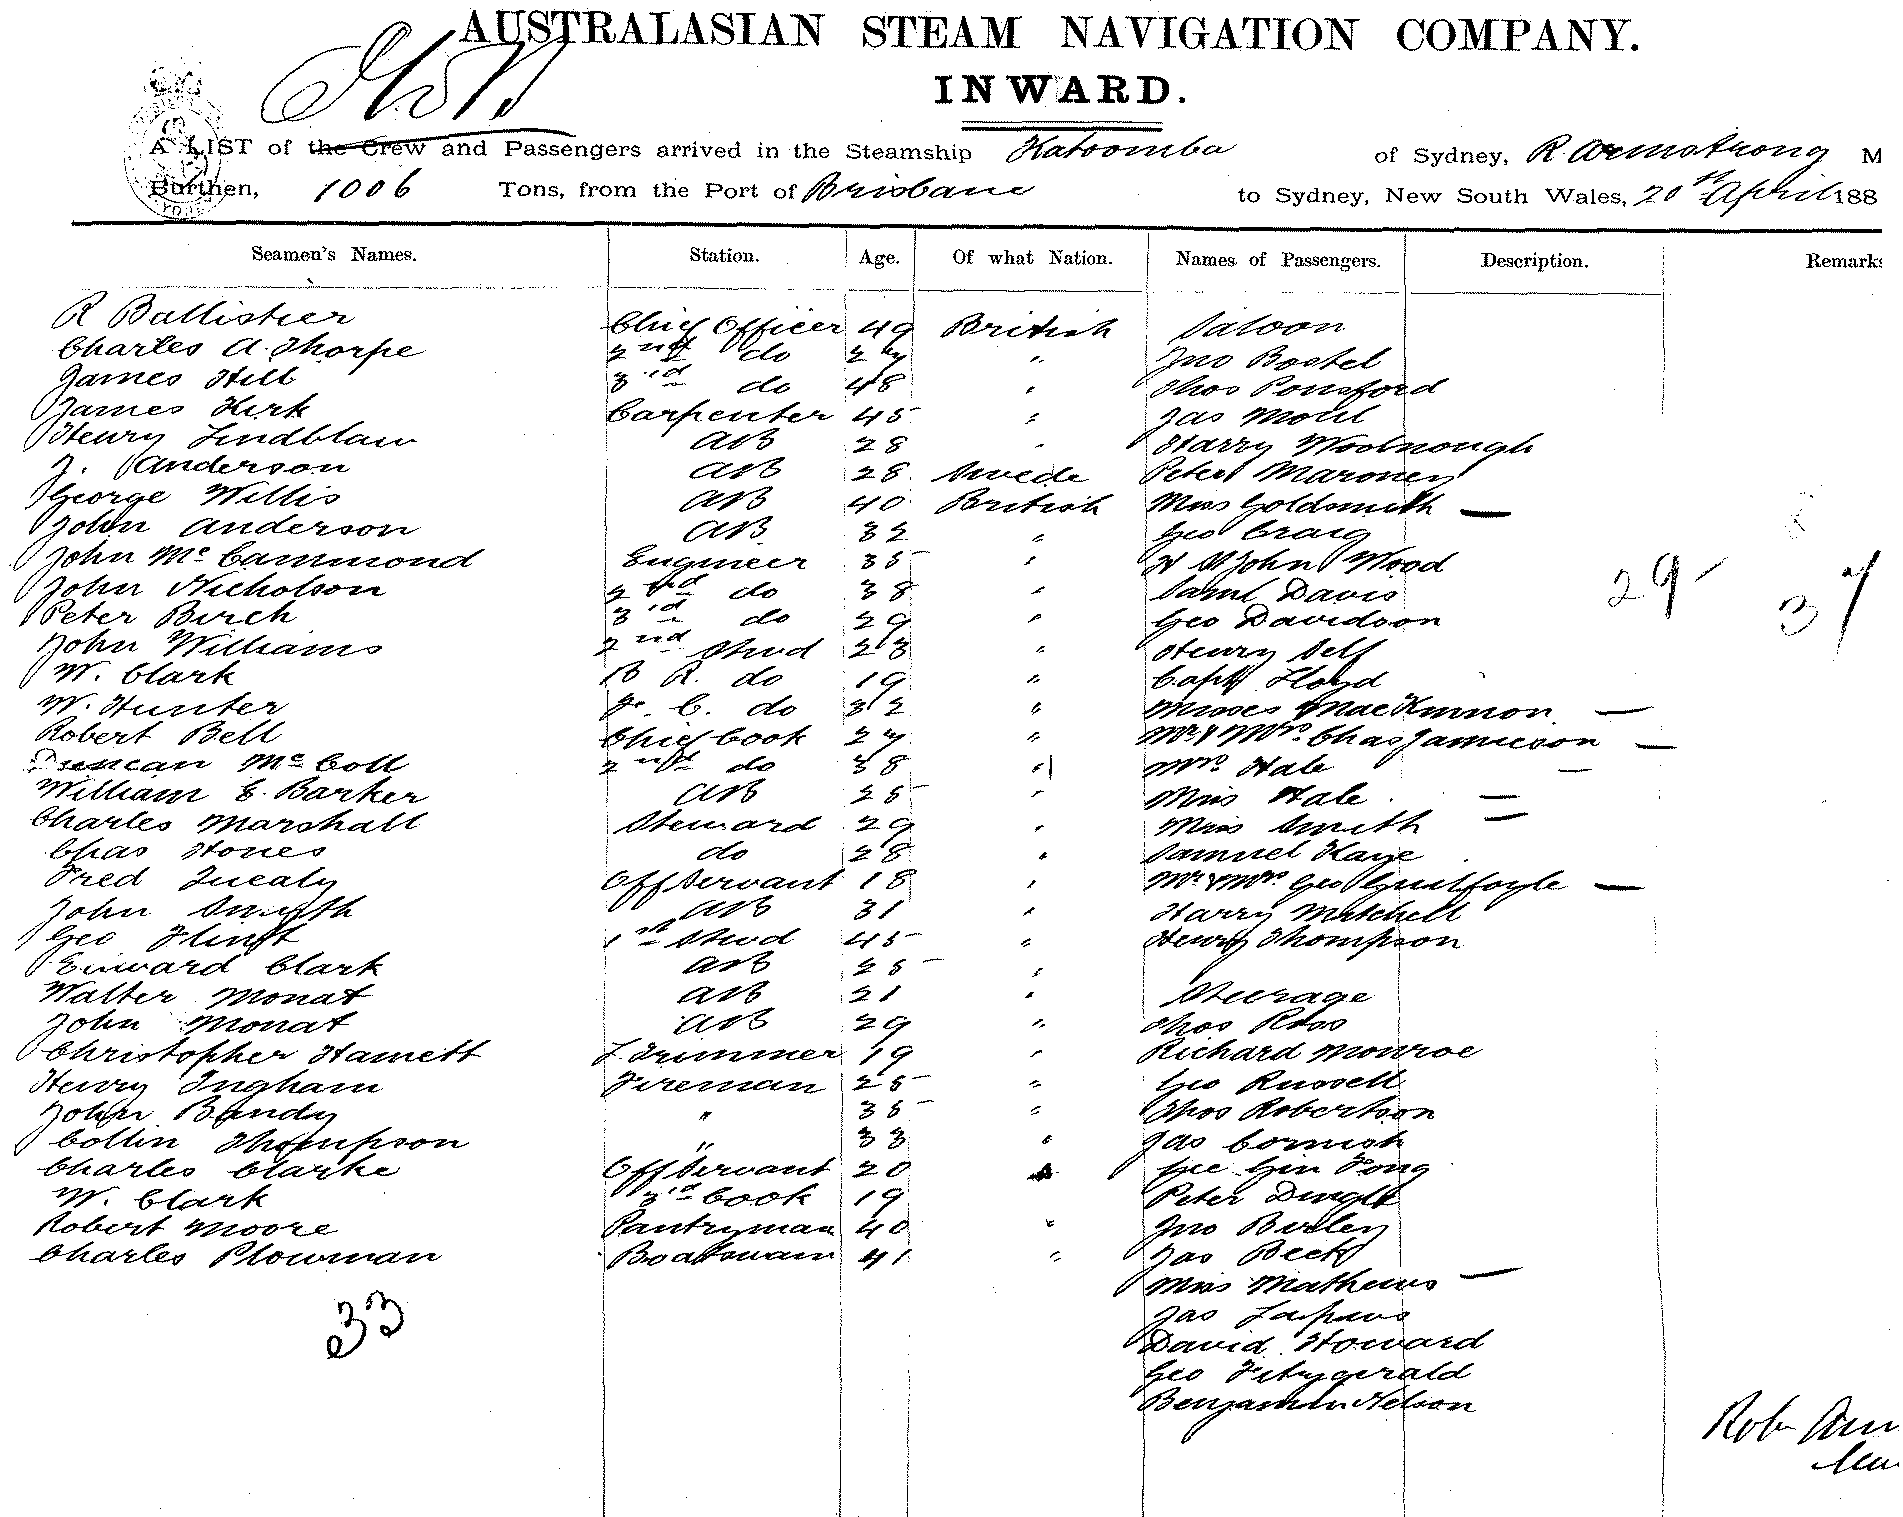 AUSTRALASIAN STEAM NAVIGATION COMPANY.
INWARD.
A LIST of the Crew and Passengers arrived in the Steamship Katoomba of Sydney, R Armstrong M
Burthen, 1006 Tons, from the Port of Brisbane to Sydney, New South Wales, 20th April 188
Seamen's Names. Station. Age. Of what Nation. Names of Passengers. Description. Remarks
R Ballistier Chief Officer 49 British Saloon
Charles A. Thorpe 2nd do 24 " Jno Bostel
James Hill 3rd do 48 " Thos Ponsford
James Kirk Carpenter 45 " Jas Moul
Henry Lindblaw AB 28 " Harry Woolnough
J. Anderson AB 28 Swede Peter Maroney
George Willis AB 40 British Miss Goldsmith —
John Anderson AB 32 " Geo Craig
John McCammond Engineer 35 " H St John Wood
John Nicholson 2nd do 38 " Saml Davis
Peter Birch 3rd do 29 " Geo Davidson
John Williams 2nd Stwd 23 " Henry Self
W. Clark B R. do 19 " Capt Lloyd
W. Hunter F. C. do 32 " Misses MacKinnon —
Robert Bell Chief Cook 24 " Mr & Mrs. Chas Jamieson —
Duncan McColl 2nd do 38 " Mrs. Hale —
William E. Barker AB 25 " Miss Hale —
Charles Marshall Steward 29 " Miss Smith —
Chas Hones do 28 " Samuel Kaye
Fred Quealy Off Servant 18 " Mr & Mrs Geo Guilfoyle —
John Smyth AB 31 " Harry Mitchell
Geo Flint 1st Stwd 45 " Henry Thompson
Edward Clark AB 25 "
Walter Monat AB 21 " Steerage
John Monat AB 29 " Thos Ross
Christopher Hamett Trimmer 19 " Richard Monroe
Henry Ingham Fireman 25 " Geo Russell
John Bandy " 35 " Thos Robertson
Collin Thompson " 33 " Jas Cornish
Charles Clarke Off Servant 20 " Gee Gin Fong
W. Clark 3rd Cook 19 Peter Dingle
Robert Moore Pantryman 40 " Jno Burley
Charles Plowman Boatswain 41 " Jas Beck
Miss Mathews —
Jas
David Howard
Geo Fitzgerald
Benjamin Nelson
29
37
33